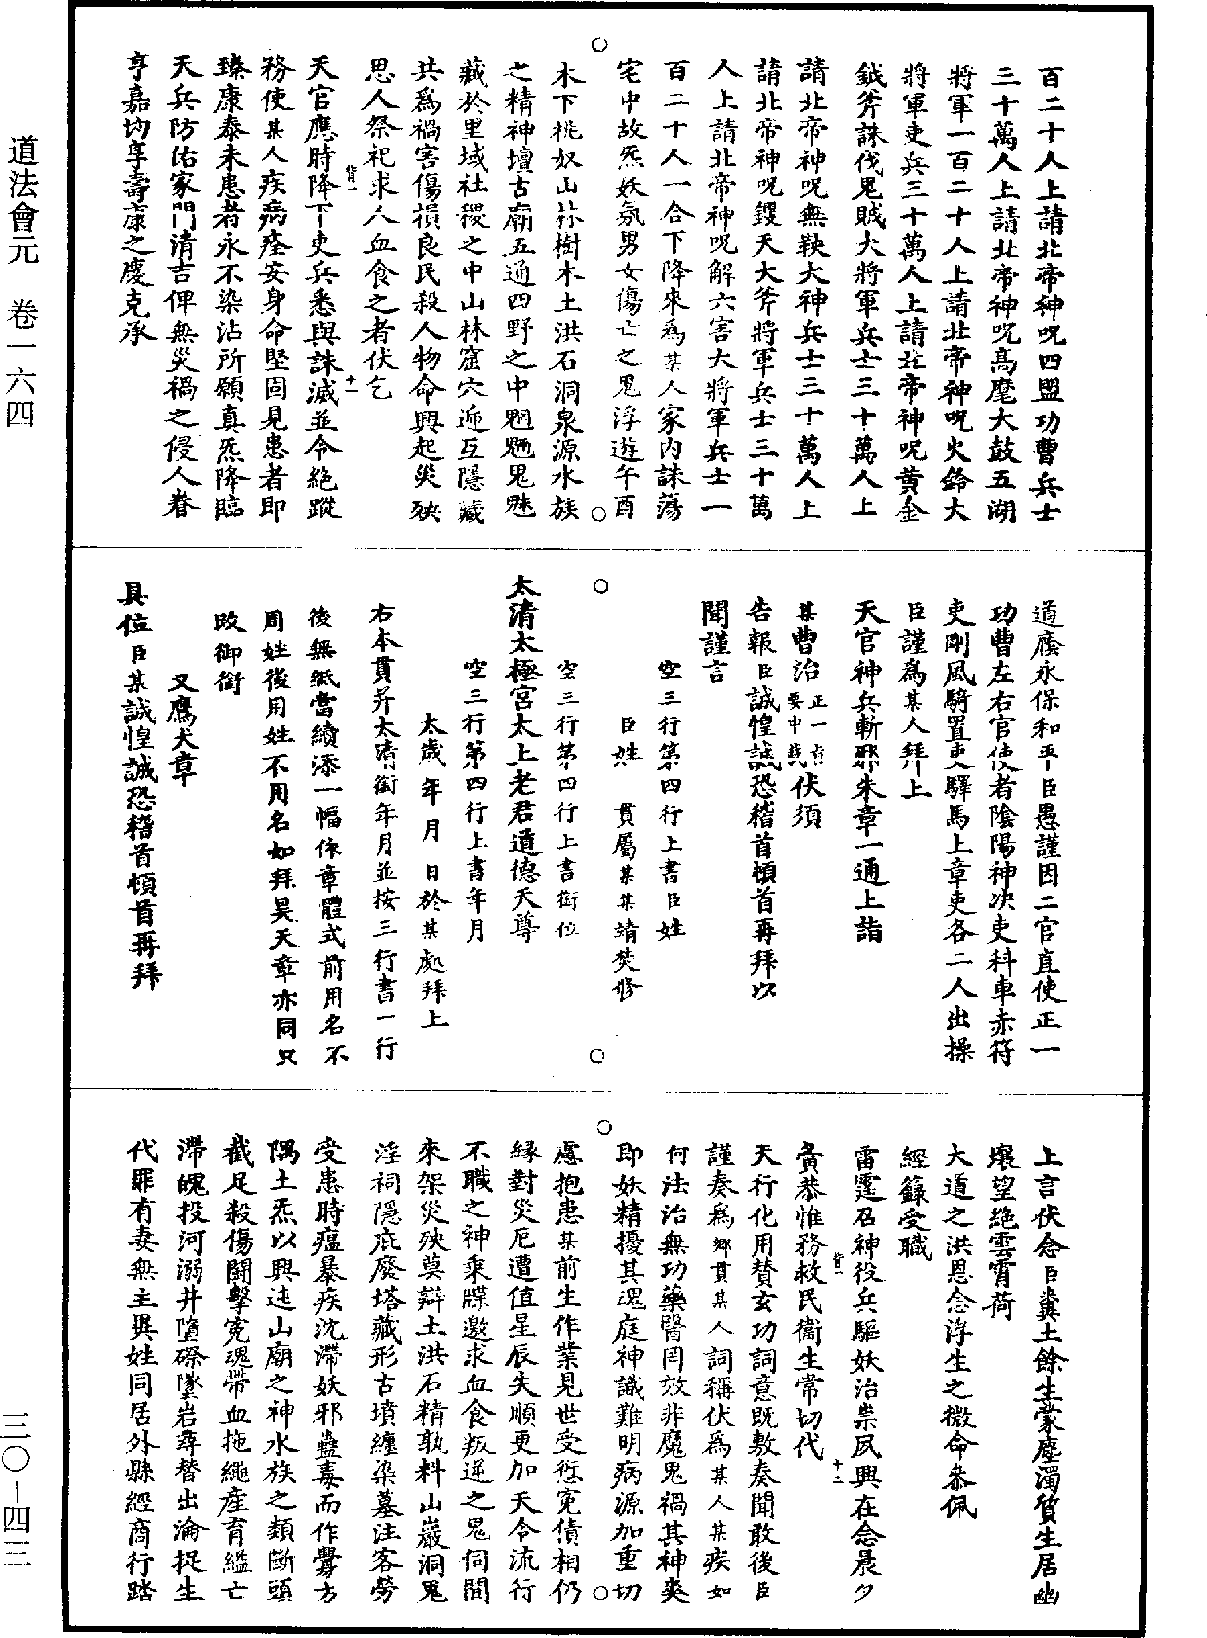 道法會元　卷一六四
三〇－四三
百二十人上請北帝神呪四盟功曹兵士
三十萬人上請北帝神呪高麾大鼓五湖
將軍一百二十人上請北帝神呪火鈴大
將軍吏兵三十萬人上請北帝神呪黃金
鉞斧誅伐鬼賊大將軍兵士三十萬人上
請北帝神呪無鞅大神兵士三十萬人上
請北帝神呪鑊天大斧將軍兵士三十萬
人上請北帝神呪解六害大將軍兵士一
百二十人一合下降來爲某人家內誅蕩
宅中故炁妖氛男女傷亡之鬼浮遊午酉
木下桃奴山林樹木土洪石洞泉源水族
之精神壇古廟五通四野之中魍魎鬼魅
藏於里域社稷之中山林窟穴迊互隱藏
共爲禍害傷損良民殺人物命興起災殃
思人祭祀求人血食之者伏乞
天官應時降下吏兵悉與誅滅並令絕蹤
務使某人疾病痊安身命堅固見患者即
臻康泰未患者永不染沾所願真炁降臨
天兵防佑家門清吉俾無災禍之侵人眷
亨嘉均享壽康之慶克承
道廕永保和平臣愚謹因二官直使正一
功曹左右官使者陰陽神決吏科車赤符
吏剛風騎置吏驛馬上章吏各二人出操
臣謹爲某人拜上
天官神兵斬邪朱章一通上詣
某曹治伏須
告報臣誠惶誠恐稽首頓首再拜以
聞謹言
空三行第四行上書臣姓
臣姓　貫屬某某靖焚修
空三行第四行上書銜位
太清太極宮太上老君道德天尊
空三行第四行上書年月
太歲年月　日於某處拜上
右本貫并太清銜年月並按三行書一行
後無紙當續添一幅依章體式前用名不
周姓後用姓不用名如拜昊天章亦同只
改御銜
又鷹犬章
具位臣某誠惶誠恐稽首頓首再拜
上言伏念臣糞土餘生蒙塵濁質生居幽
壤望絕雲霄荷
大道之洪恩念浮生之微命叅佩
經籙受職
雷霆召神役兵驅妖治祟夙興在念晨夕
貪恭惟務救民衞生常切代
天行化用贊玄功詞意既敷奏聞敢後臣
謹奏爲鄉貫某人詞稱伏爲某人某疾如
何法治無功藥醫罔效非魔鬼禍其神爽
即妖精擾其魂庭神識難明病源加重切
慮抱患某前生作業見世受愆寃債相仍
緣對災厄遭值星辰失順更加天令流行
不職之神乘牒邀求血食叛逆之鬼伺間
來架災殃莫辯土洪石精孰料山巖洞鬼
淫祠隱庇廢塔藏形古墳纏染墓注客勞
受患時瘟暴疾沈滯妖邪蠱毒而作釁方
隅土炁以興迍山廟之神水族之類斷頭
截足殺傷鬭擊寃魂帶血拖繩產育縊亡
滯魄投河溺井墮磜墜岩尋替出淪捉生
代罪有妻無主異姓同居外縣經商行踏